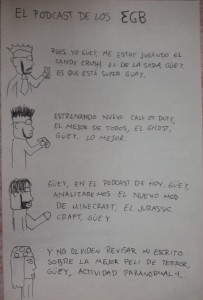 EL PODCAST DE LOS EGB
PUES, YO GÜEY, ME ESTOY JUGANDO EL
CANDY CRUSH, EL DE LA SODA, GÜEY,
ES QUE ESTÁ SUPER GUAY.
ESTRENANDO NUEVO CALL OF DUTY,
EL MEJOR DE TODOS, EL GHOST,
GÜEY, LO MEJOR.
GÜEY, EN EL PODCAST DE HOY, GÜEY,
ANALIZAREMOS EL NUEVO MOD
DE MINECRAFT, EL JURASSIC
CRAFT, GÜEY.
Y NO OLVIDEN REVISAR MI ESCRITO
SOBRE LA MEJOR PELI DE TERROR,
GÜEY, ACTIVIDAD PARANORMAL 4.